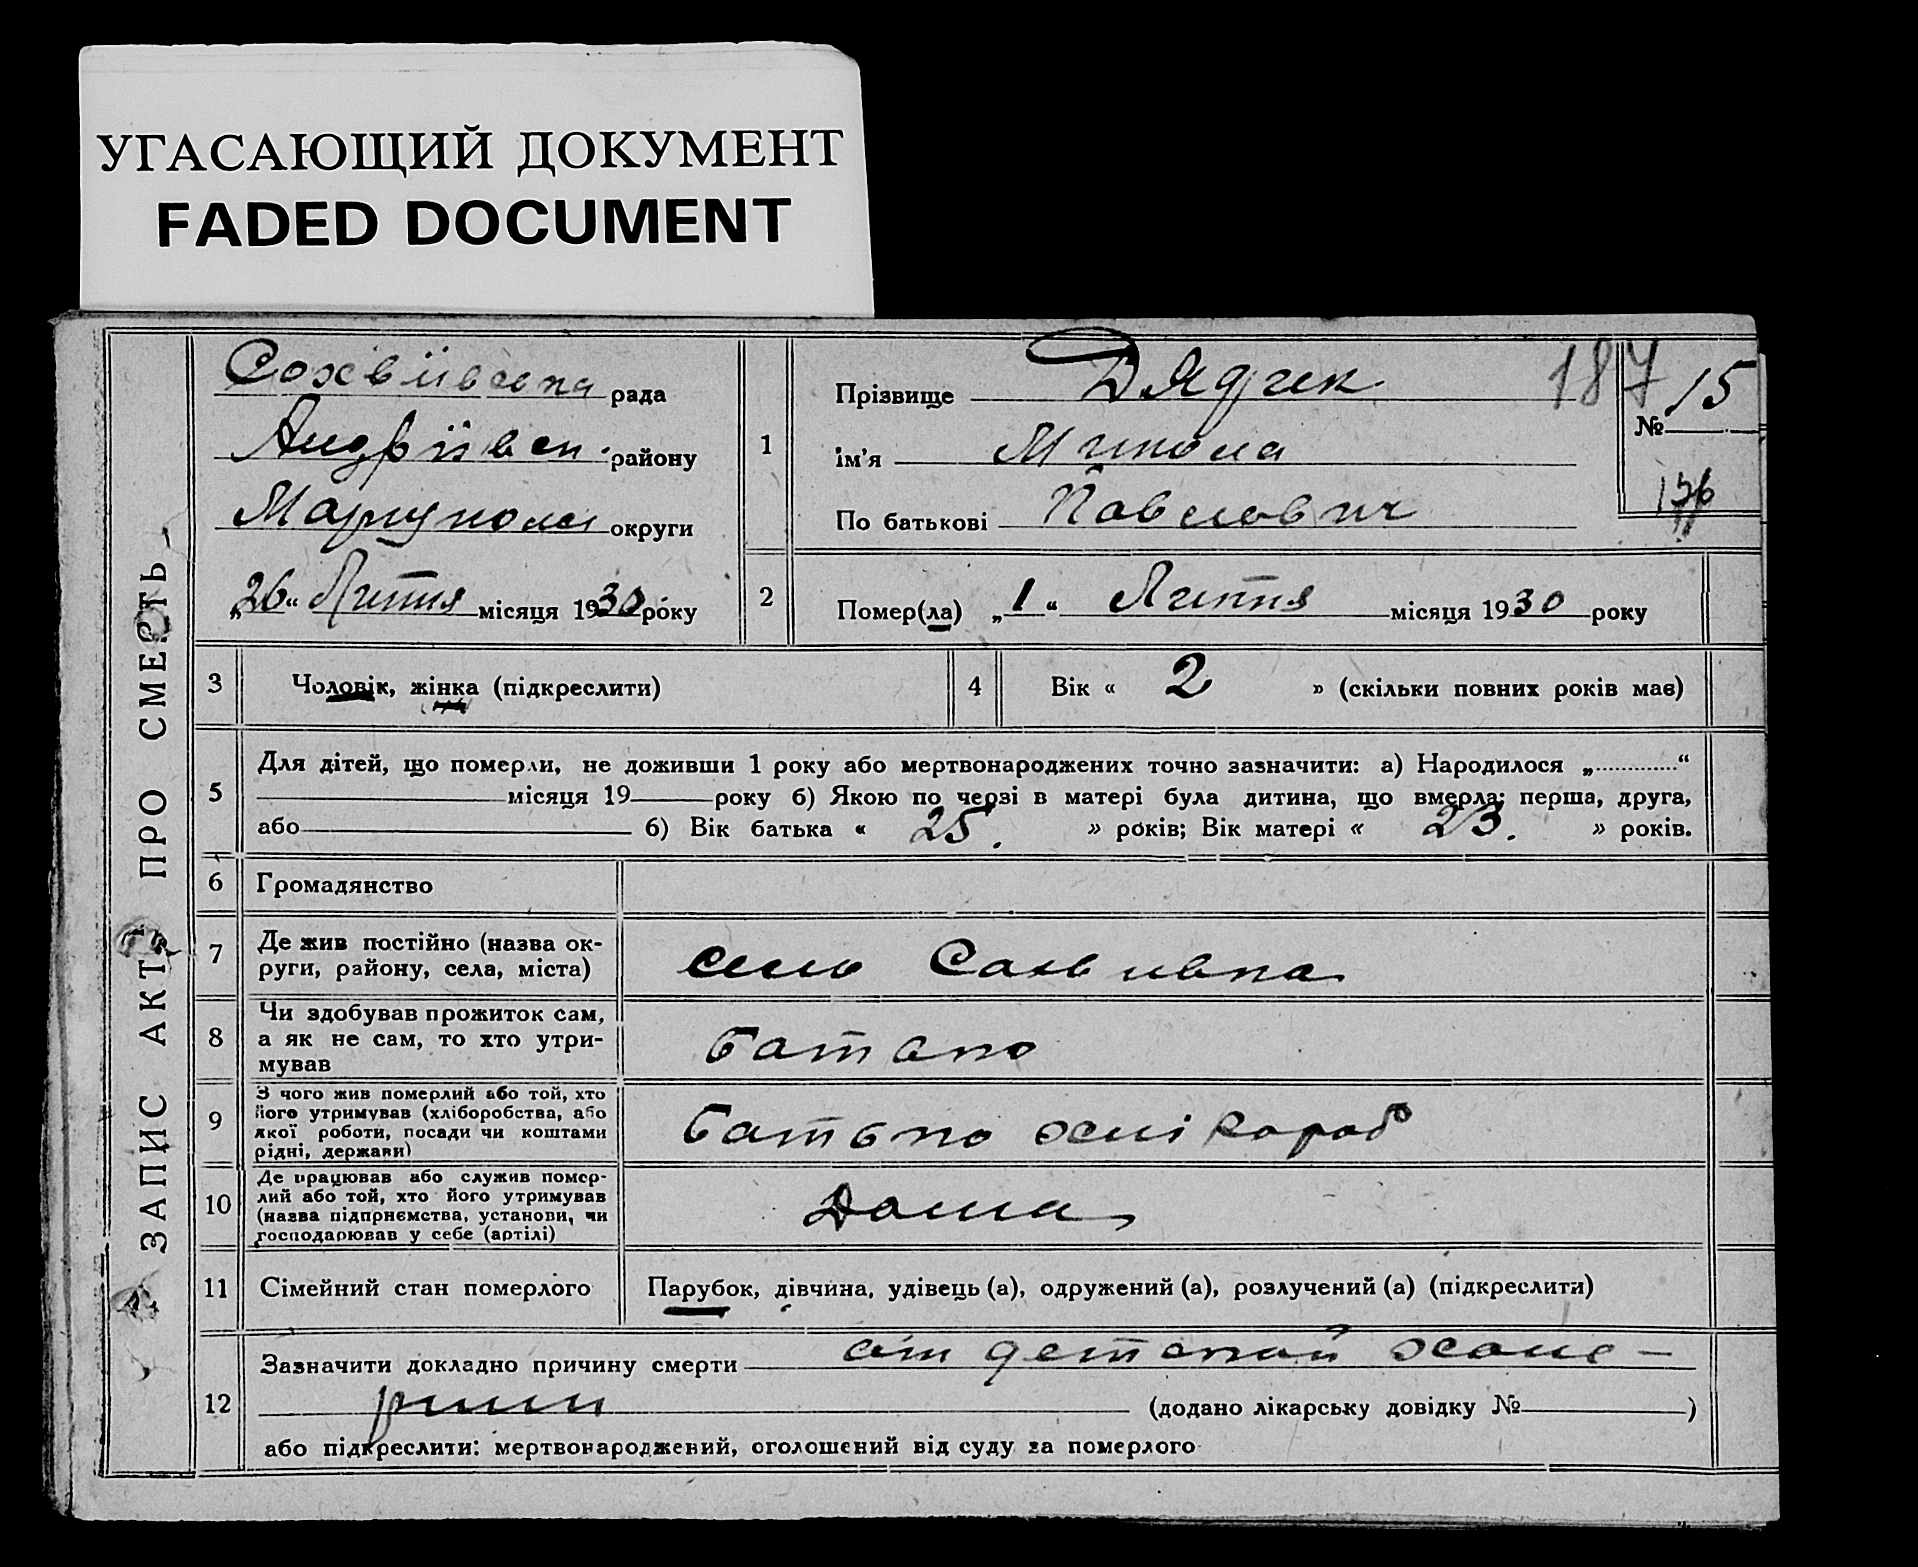 УГАСАЮЩИЙ ДОКУМЕНТ
FADED DOCUMENT
ЗАПИС АКТУ ПРО СМЕРТЬ
Сохвіївська рада
Андріївськ. району
Маріупольс округи
„26“ Липня місяця 1930 року
1
Прізвище Дядик
ім’я Микола
По батькові Павлович
187
№ 15
2
Помер(ла) „1“ Липня місяця 1930 року
3
Чоловік, жінка (підкреслити)
4
Вік « 2 » (скільки повних років має)
5
Для дітей, що померли, не доживши 1 року або мертвонароджених точно зазначити: а) Народилося „.............“
місяця 19 року б) Якою по черзі в матері була дитина, що вмерла: перша, друга,
або 6) Вік батька « 25. » років; Вік матері « 23. » років.
6
Громадянство
7
Де жив постійно (назва ок-
руги, району, села, міста)
село Сахвіивка
8
Чи здобував прожиток сам,
а як не сам, то хто утри-
мував
батько
9
З чого жив померлий або той, хто
його утримував (хліборобства, або
якої роботи, посади чи коштами
рідні, держави)
батько хлібороб
10
Де працював або служив помер-
лий або той, хто його утримував
(назва підпрнємства, установи, чи
господарював у себе (артілі)
Дома
11
Сімейний стан померлого
Парубок, дівчина, удівець (а), одружений (а), розлучений (а) (підкреслити)
12
Зазначити докладно причину смерти от детской холе-
рини (додано лікарську довідку № )
або підкреслити: мертвонароджений, оголошений від суду за померлого